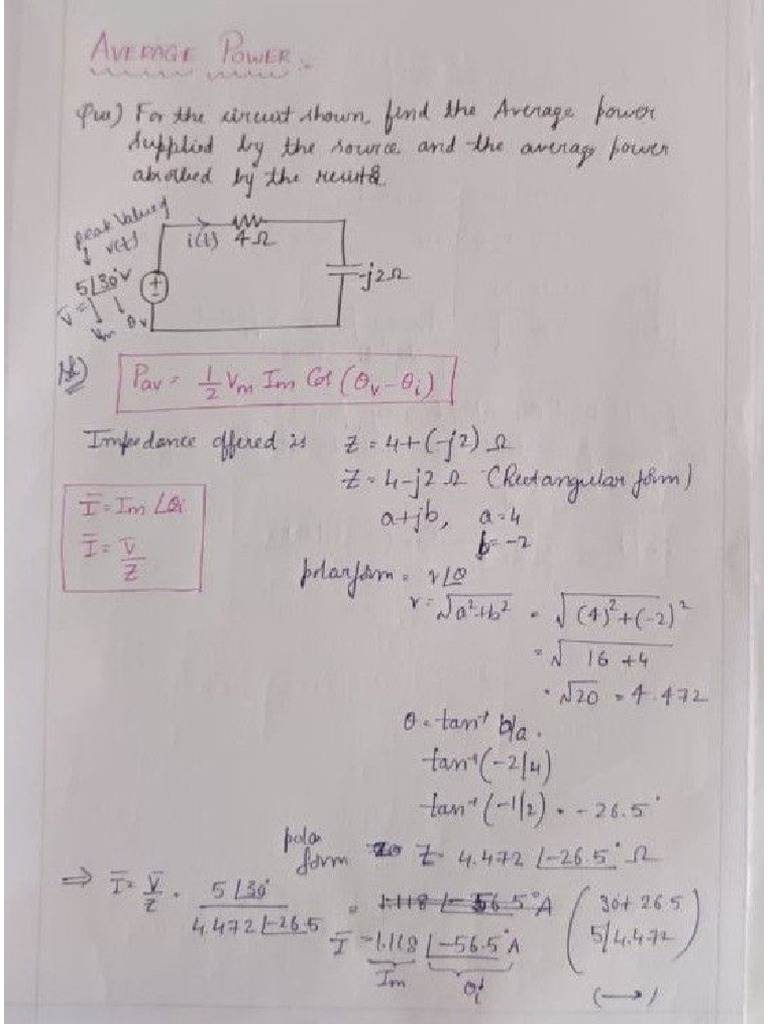 AVERAGE POWER :-
Que) For the circuit shown, find the Average power
supplied by the source and the average power
absolbed by the resist&
peak value of
v(t)
i(t) 4Ω
5∠30°V
-j2Ω
V̅ =
Vm θv
Sol)
Pav = 1/2 Vm Im Cos (θv - θi)
Impedance offered is Z = 4+(-j2) Ω
Z = 4-j2 Ω (Rectangular form)
I̅ = Im ∠θi
a+jb, a=4
b=-2
I̅ = V̅/Z
polar form = r∠θ
r = √a²+b² = √(4)²+(-2)²
= √16+4
= √20 = 4.472
θ = tan⁻¹ b/a.
tan⁻¹(-2/4)
tan⁻¹(-1/2) = -26.5°
polar form Z = 4.472 ∠-26.5° Ω
⇒ I̅ = V̅/Z = 5∠30°/4.472∠-26.5 = 1.118 ∠-56.5° A (30+26.5
I̅ = 1.118 ∠-56.5° A 5/4.472)
Im θi
(→)